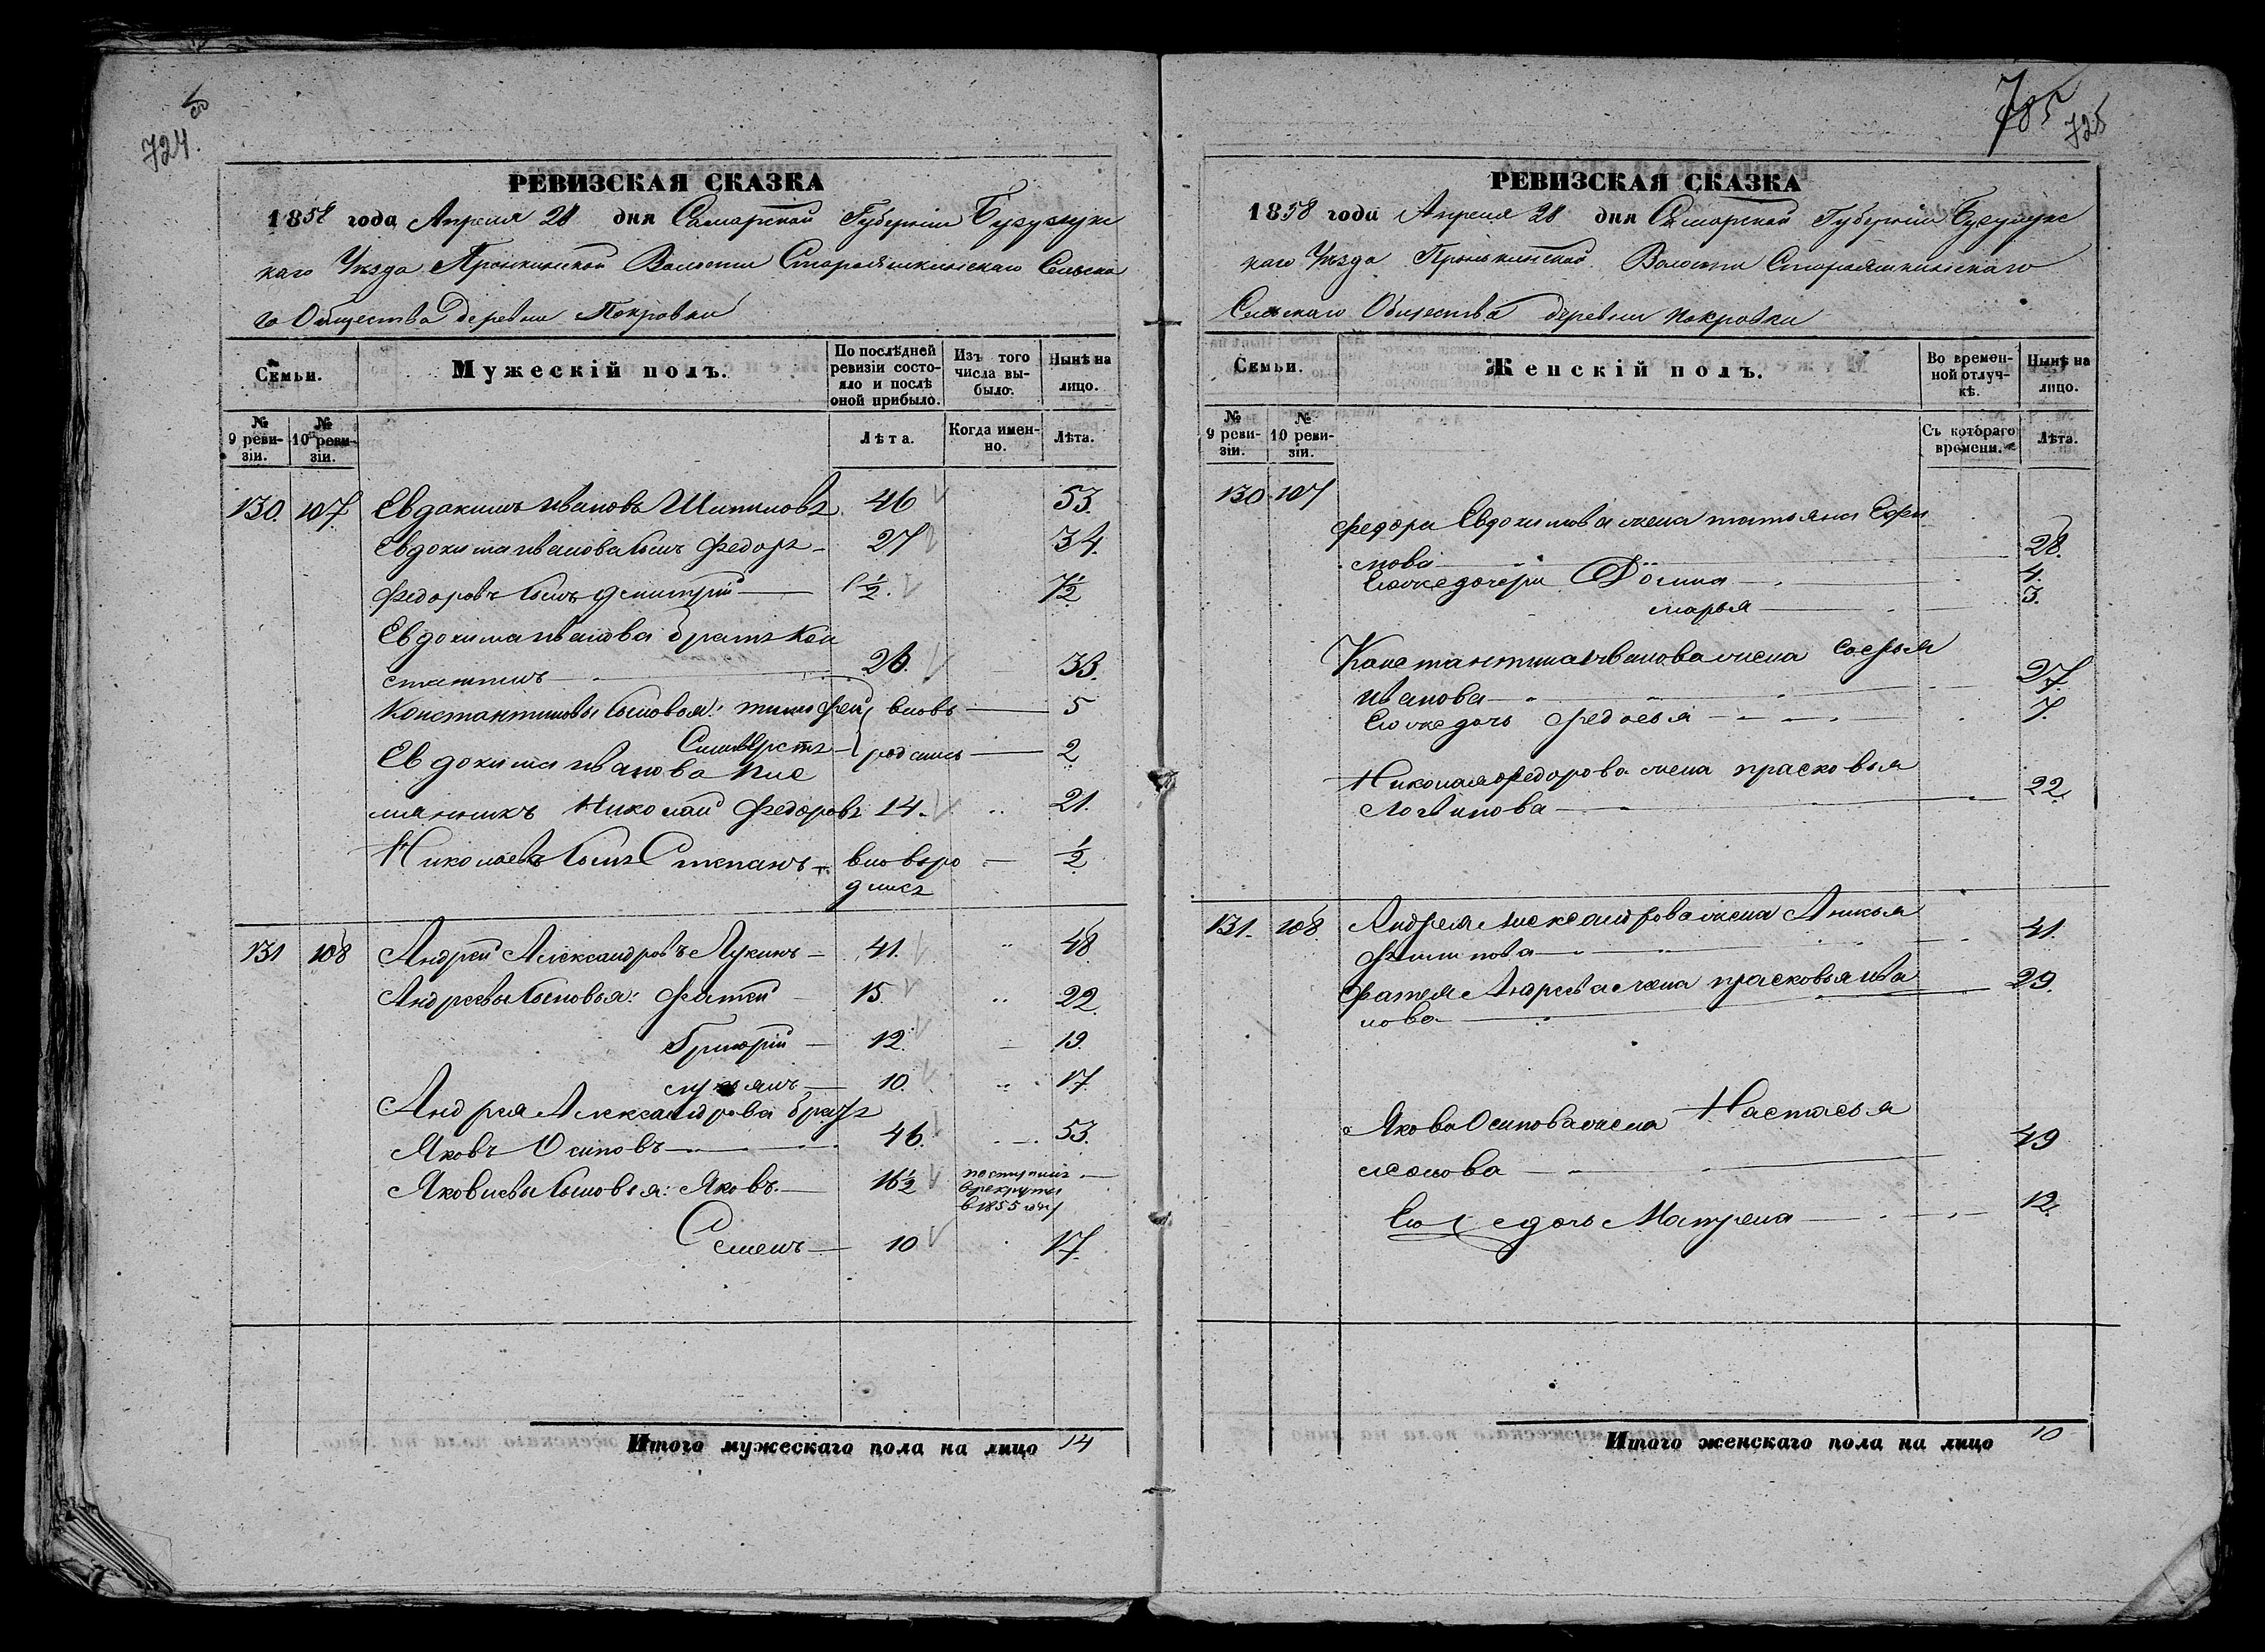 724.
РЕВИЗСКАЯ СКАЗКА
1858 года Апреля 28 дня Самарской Губернии Бузулукс
каго Уезда Пронкинской Волости Староашкинскаго Сельска
го Общества деревни Покровки
Семьи.
Мужескій полъ.
По послѣдней ревизіи состояло и послѣ оной прибыло.
Изъ того числа выбыло.
Нынѣ на лицо.
№ 9 ревизіи.
№ 10 ревизіи.
Лѣта.
Когда именно.
Лѣта.
130. 107 Евдокимъ Ивановъ Шипиловъ 46 53.
Евдокима Иванова сынъ Федоръ 27 34.
Федоровъ сынъ Дмитрій ½. 7½
Евдокима Иванова братъ Кон
стантинъ 26. 33.
Константиновы сыновья: Тимофей вновь 5
Сильверстъ родились 2
Евдокима Иванова пле
мянникъ Николай Федоровъ 14. 21.
Николаевъ сынъ Степанъ вновь ро ½
дился
131 108 Андрей Александровъ Лукинъ 41. 48
Андреевы сыновья: Фатей 15. 22
Григорій 12. 19.
Лукьянъ 10. 17.
Андрея Александрова братъ
Яковъ Осиповъ 46. 53.
Яковлевы сыновья: Яковъ 16½ поступилъ
в рекруты
в 1855 году
Семенъ 10 17.
Итого мужескаго пола на лицо 14
785 725
РЕВИЗСКАЯ СКАЗКА
1858 года Апреля 28 дня Самарской Губернии Бузулукс
каго Уезда Пронькинской Волости Староашкинскаго
Сельскаго Общества деревни Покровки
Семьи.
Женскій полъ.
Во временной отлучкѣ.
Нынѣ на лицо.
№ 9 ревизіи.
№ 10 ревизіи.
Съ котораго времени.
Лѣта.
130 107
Федора Евдокимова жена Татьяна Ефи
мова 28.
Его же дочери 4.
Марья 3.
Константина Иванова жена Софья
Иванова 27.
Его же дочь Федосья 7.
Николая Федорова жена Прасковья
Логвинова 22.
131. 108. Андрея Александрова жена Анисья
Филипова 41.
Фатея Андреева жена Прасковья Ива
нова 29.
Якова Осипова жена Настасья
49
Его же дочь Матрена 12.
Итого женскаго пола на лицо 10